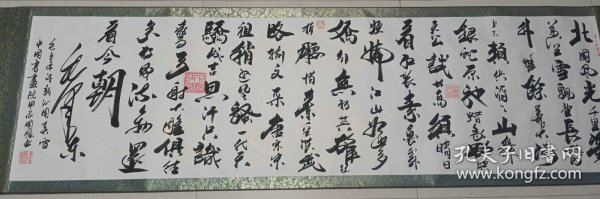 北国风光千里冰
万里雪飘望长城
外惟馀莽大河
上下顿失滔山舞
银蛇原驰蜡象欲与
天公试比高须晴日
看红装素裹分外
妖娆江山如此多
娇引无数英雄竞
折腰惜秦皇汉武
略输文采唐宗宋
祖稍逊风骚一代天
骄成吉思汗只识
弯弓射大雕俱往
矣数风流人物还
看今朝
毛泽东
毛主席诗词沁园春雪
中国书画院
孔夫子旧书网
book.kongfz.com